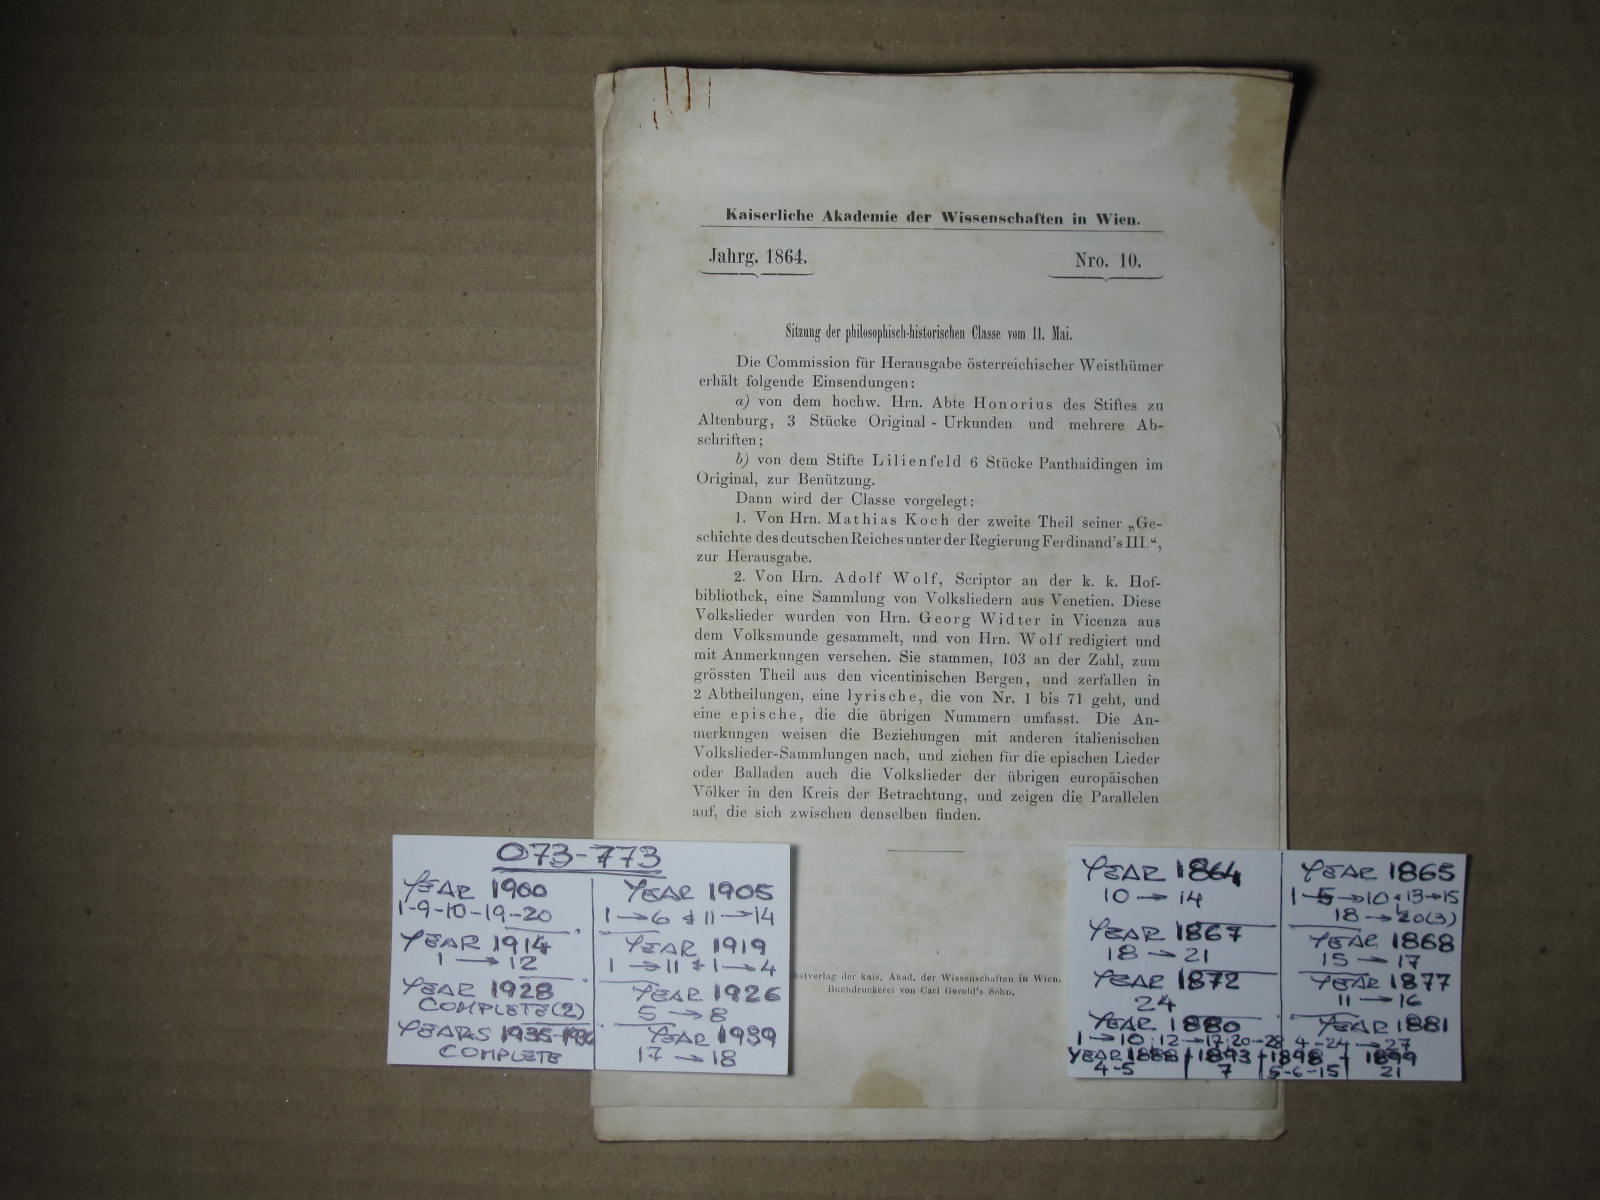 Kaiserliche Akademie der Wissenschaften in Wien.
Jahrg. 1864.
Nro. 10.
Sitzung der philosophisch-historischen Classe vom 11. Mai.
Die Commission für Herausgabe österreichischer Weisthümer
erhält folgende Einsendungen:
a) von dem hochw. Hrn. Abte Honorius des Stiftes zu
Altenburg, 3 Stücke Original-Urkunden und mehrere Ab-
schriften;
b) von dem Stifte Lilienfeld 6 Stücke Panthaidingen im
Original, zur Benützung.
Dann wird der Classe vorgelegt:
1. Von Hrn. Mathias Koch der zweite Theil seiner „Ge-
schichte des deutschen Reiches unter der Regierung Ferdinand's III.“,
zur Herausgabe.
2. Von Hrn. Adolf Wolf, Scriptor an der k. k. Hof-
bibliothek, eine Sammlung von Volksliedern aus Venetien. Diese
Volkslieder wurden von Hrn. Georg Widter in Vicenza aus
dem Volksmunde gesammelt, und von Hrn. Wolf redigiert und
mit Anmerkungen versehen. Sie stammen, 103 an der Zahl, zum
grössten Theil aus den vicentinischen Bergen, und zerfallen in
2 Abtheilungen, eine lyrische, die von Nr. 1 bis 71 geht, und
eine epische, die die übrigen Nummern umfasst. Die An-
merkungen weisen die Beziehungen mit anderen italienischen
Volkslieder-Sammlungen nach, und ziehen für die epischen Lieder
oder Balladen auch die Volkslieder der übrigen europäischen
Völker in den Kreis der Betrachtung, und zeigen die Parallelen
auf, die sich zwischen denselben finden.
bstverlag der kais. Akad. der Wissenschaften in Wien.
Buchdruckerei von Carl Gerold's Sohn.
073-773
YEAR 1900
1-9-10-19-20
YEAR 1914
1 → 12
YEAR 1928
COMPLETE(2)
YEARS 1935-1936
COMPLETE
YEAR 1905
1 → 6 & 11 → 14
YEAR 1919
1 → 11 & 1 → 4
YEAR 1926
5 → 8
YEAR 1939
17 → 18
YEAR 1864
10 → 14
YEAR 1867
18 → 21
YEAR 1872
24
YEAR 1880
1 → 10; 12 → 17; 20 → 28
YEAR 1865
1-5 → 10 & 13 → 15
18 → 20(3)
YEAR 1868
15 → 17
YEAR 1877
11 → 16
YEAR 1881
4-24 → 27
YEAR 1888 1893 1898 1899
4-5 7 5-6-15 21